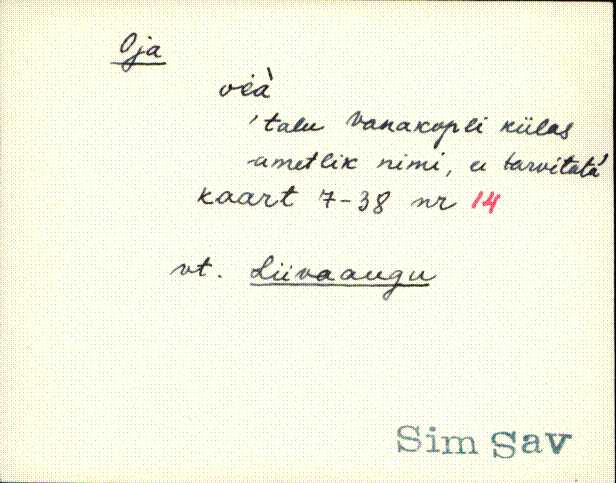 Oja
oià
'talu Vanakopli külas
ametlik nimi, ei tarvitatá
kaart 7-38 nr 14
vt. Liivaaugu
Sim Sav